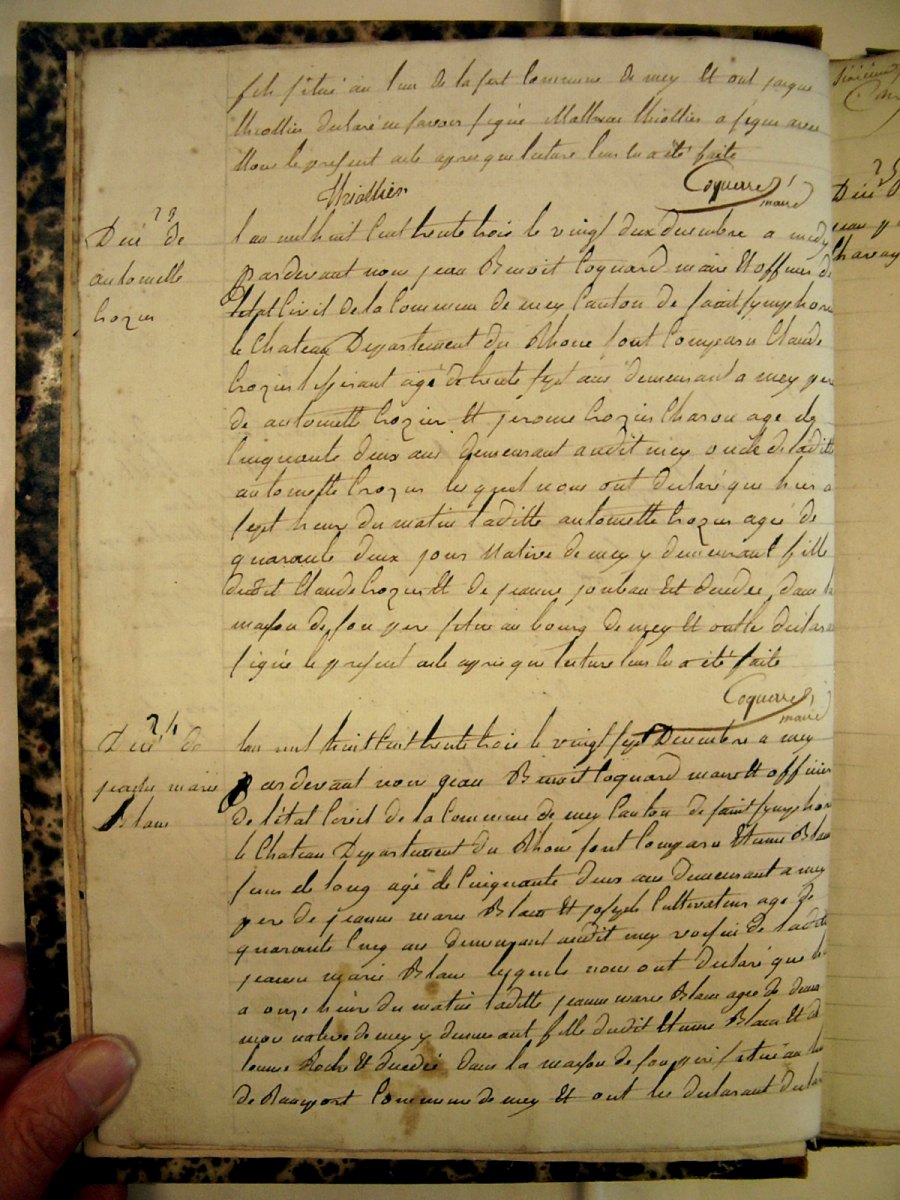 situé au lieu de la commune de mey Et ont jacque
thiollier declaré ne savoir signé Mathieu thiollier a signé avec
Nous le present acte apres que lecture leur en a été faite
thiollier
Coquerre
maire
23
Décé de
antoinette
crozier
lan mil huit cent trente trois le vingt deux decembre a midy
pardevant nous jean Benoit Coquard maire Et officier de
létat Civil de la Commune de mey Canton de saint symphorien
le Chateau Departement du Rhone sont Comparu Claude
crozier agé de trente sept ans demeurant a mey pere
de antoinette crozier Et jerome crozier Charon agé de
Cinquante deux ans demeurant audit mey oncle de ladite
antoinette crozier lesquel nous ont declaré que hier a
sept heure du matin laditte antoinette crozier agée de
quarante deux jours Native de mey y demeurant fille
dudit Claude crozier Et de jeanne Et decedee dans la
maison de son pere situé au bourg de mey Et ont
signé le present acte apres que lecture leur en a été faite
Coquerre
maire
24
Décé de
jeanne marie
Blanc
lan mil huit cent trente trois le vingt sept Decembre a midy
pardevant nous jean Benoit Coquard maire Et officier
de l'état Civil de la Commune de mey Canton de saint symphorien
le Chateau Departement du Rhone sont Comparu Etienne Blanc
agé de Cinquante deux ans demeurant a mey
pere de jeanne marie Blanc Et joseph Cultivateur agé de
quarante Cinq ans demeurant audit mey voisin de ladite
jeanne marie Blanc lesquels nous ont declaré que
a onze heure du matin laditte jeanne marie Blanc agée de deux
mois native de mey y demeurant fille dudit Etienne Blanc Et de
Roche Et decedée Dans la maison de son pere situé au lieu
de Rampont Commune de mey Et ont les declarant declaré
25
Décé
jean